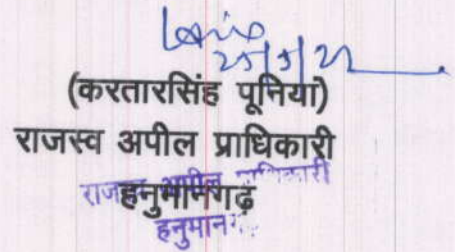 25/5/22
(करतारसिंह पूनिया)
राजस्व अपील प्राधिकारी
हनुमानगढ़
राजस्व अपील प्राधिकारी
हनुमान